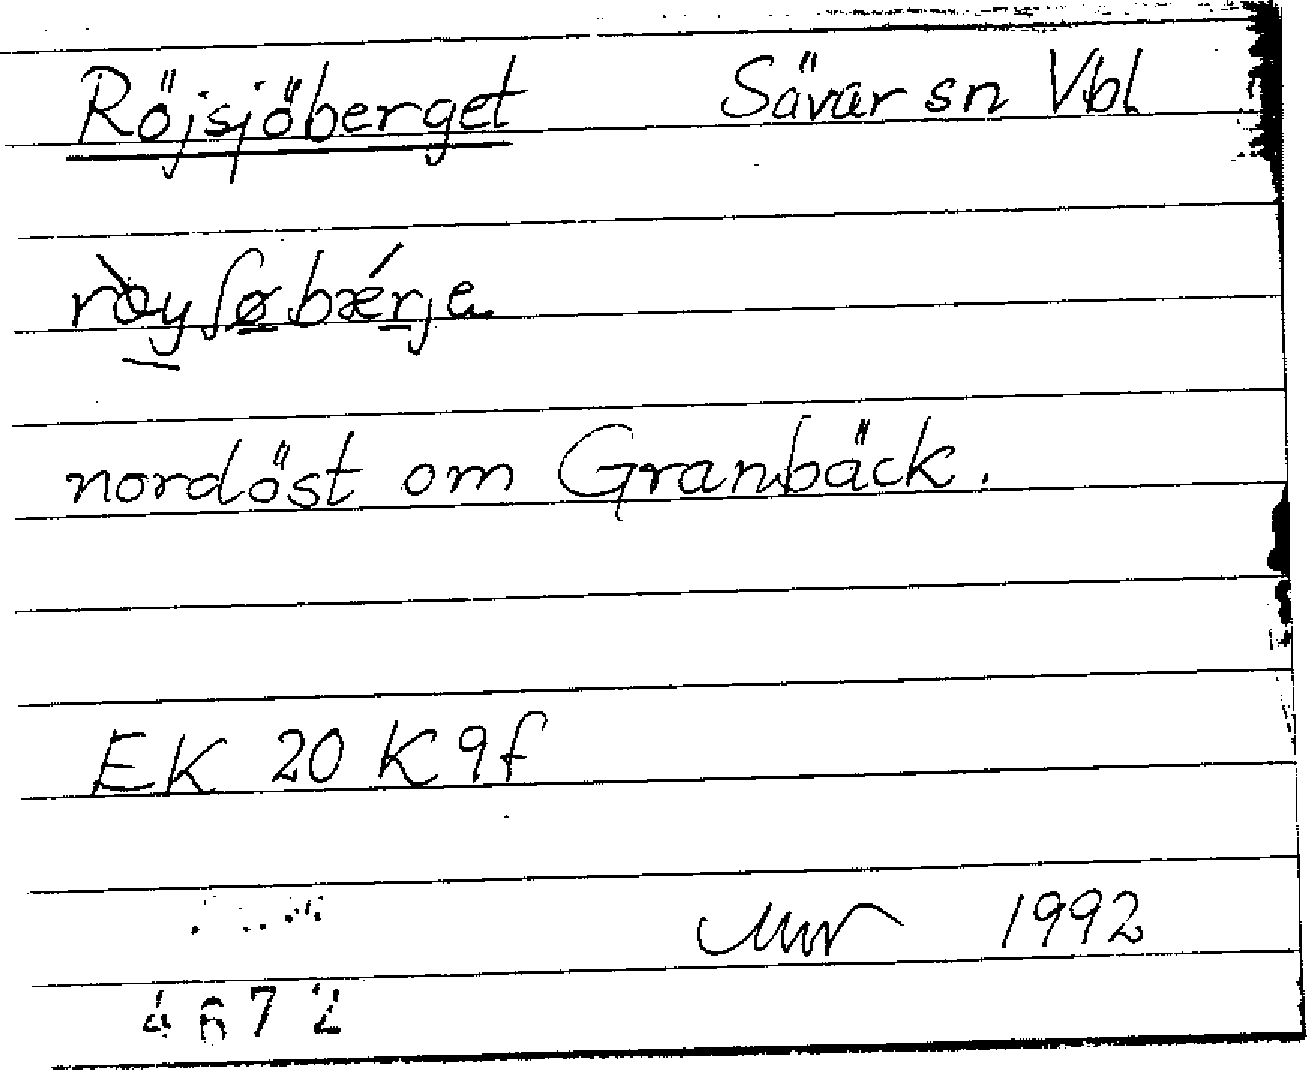 Röjsjöberget Sävar sn Vbl
ròyʃøbǽrje
nordöst om Granbäck.
EK 20 K 9f
1992
4672